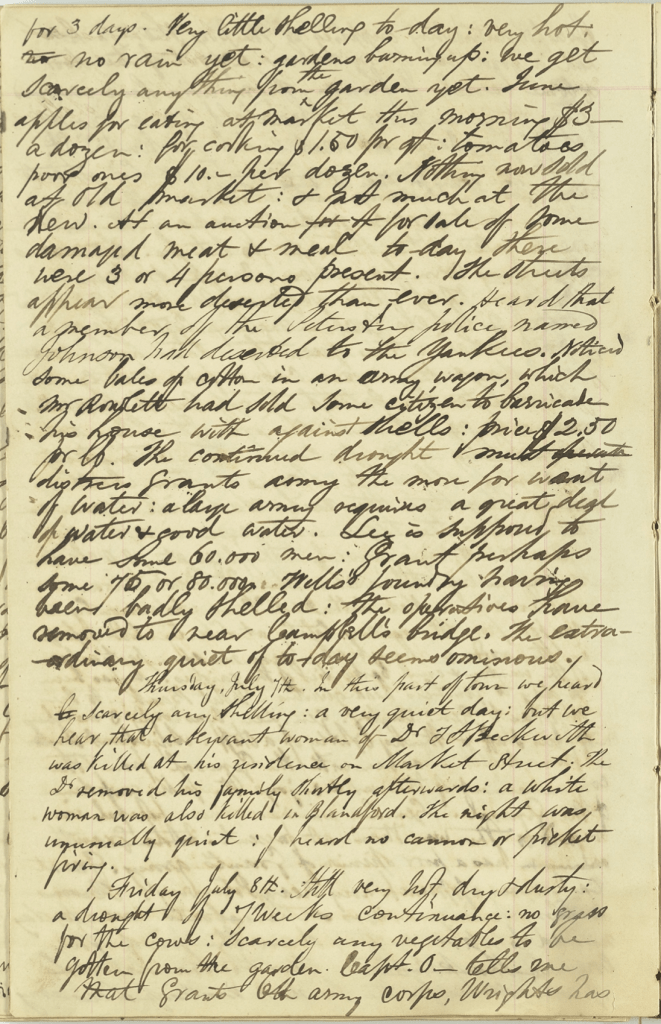 for 3 days. Very little shelling to-day: very hot.
no rain yet: gardens burning up: we get
scarcely any thing from the garden yet. June
apples for eating at market this morning $3—
a dozen: for cooking $1.50 pr qt: tomatoes
poor ones $10.— per dozen. Nothing now sold
at old market: & not much at the
new. At an auction for sale of some
damaged meat & meal to-day there
were 3 or 4 persons present. The streets
appear more deserted than ever. Heard that
a member of the Petersburg police named
Johnson had deserted to the Yankees. Noticed
some bales of cotton in an army wagon, which
Mr Rowlett had sold some citizen to barricade
his house with against shells: price $2.50
pr lb. The continued drought must
distress Grants army the more for want
of water: a large army requires a great deal
of water & good water. Lee is supposed to
have some 60.000 men: Grant perhaps
some 75 or 80.000. Wells' foundry having
been badly shelled: the operatives have
removed to near Campbell's bridge. The extra-
-ordinary quiet of to-day seems ominous.
Thursday, July 7th. In this part of town we heard
scarcely any shelling: a very quiet day: but we
hear that a servant woman of Dr T S Beckwith
was killed at his residence on Market Street: the
Dr removed his family shortly afterwards: a white
woman was also killed in Blandford. The night was
unusually quiet: I heard no cannon or picket
firing.
Friday July 8th. Still very hot, dry & dusty:
a drought of 7 weeks continuance: no grass
for the cows: scarcely any vegetables to be
gotten from the garden. Capt. O— tells me
that Grants 6th army corps, Wrights has